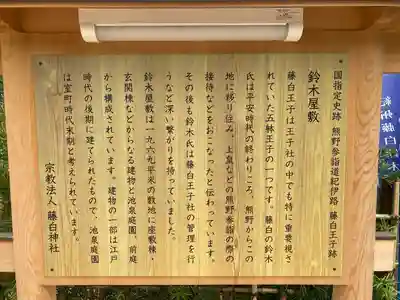 国指定史跡 熊野参詣道紀伊路 藤白王子跡
鈴木屋敷
藤白王子は王子社の中でも特に重要視さ
れていた五躰王子の一つです。藤白の鈴木
氏は平安時代の終わりごろ、熊野からこの
地に移り住み、上皇などの熊野参詣の際の
接待などをおこなったと伝わっています。
その後も鈴木氏は藤白王子社の管理を行
うなど深い繋がりを持っていました。
鈴木屋敷は一九六九平米の敷地に座敷棟・
玄関棟などからなる建物と池泉庭園、前庭
から構成されています。建物の一部は江戸
時代の後期に建てられたもので、池泉庭園
は室町時代末期と考えられています。
宗教法人 藤白神社
紀州藤白